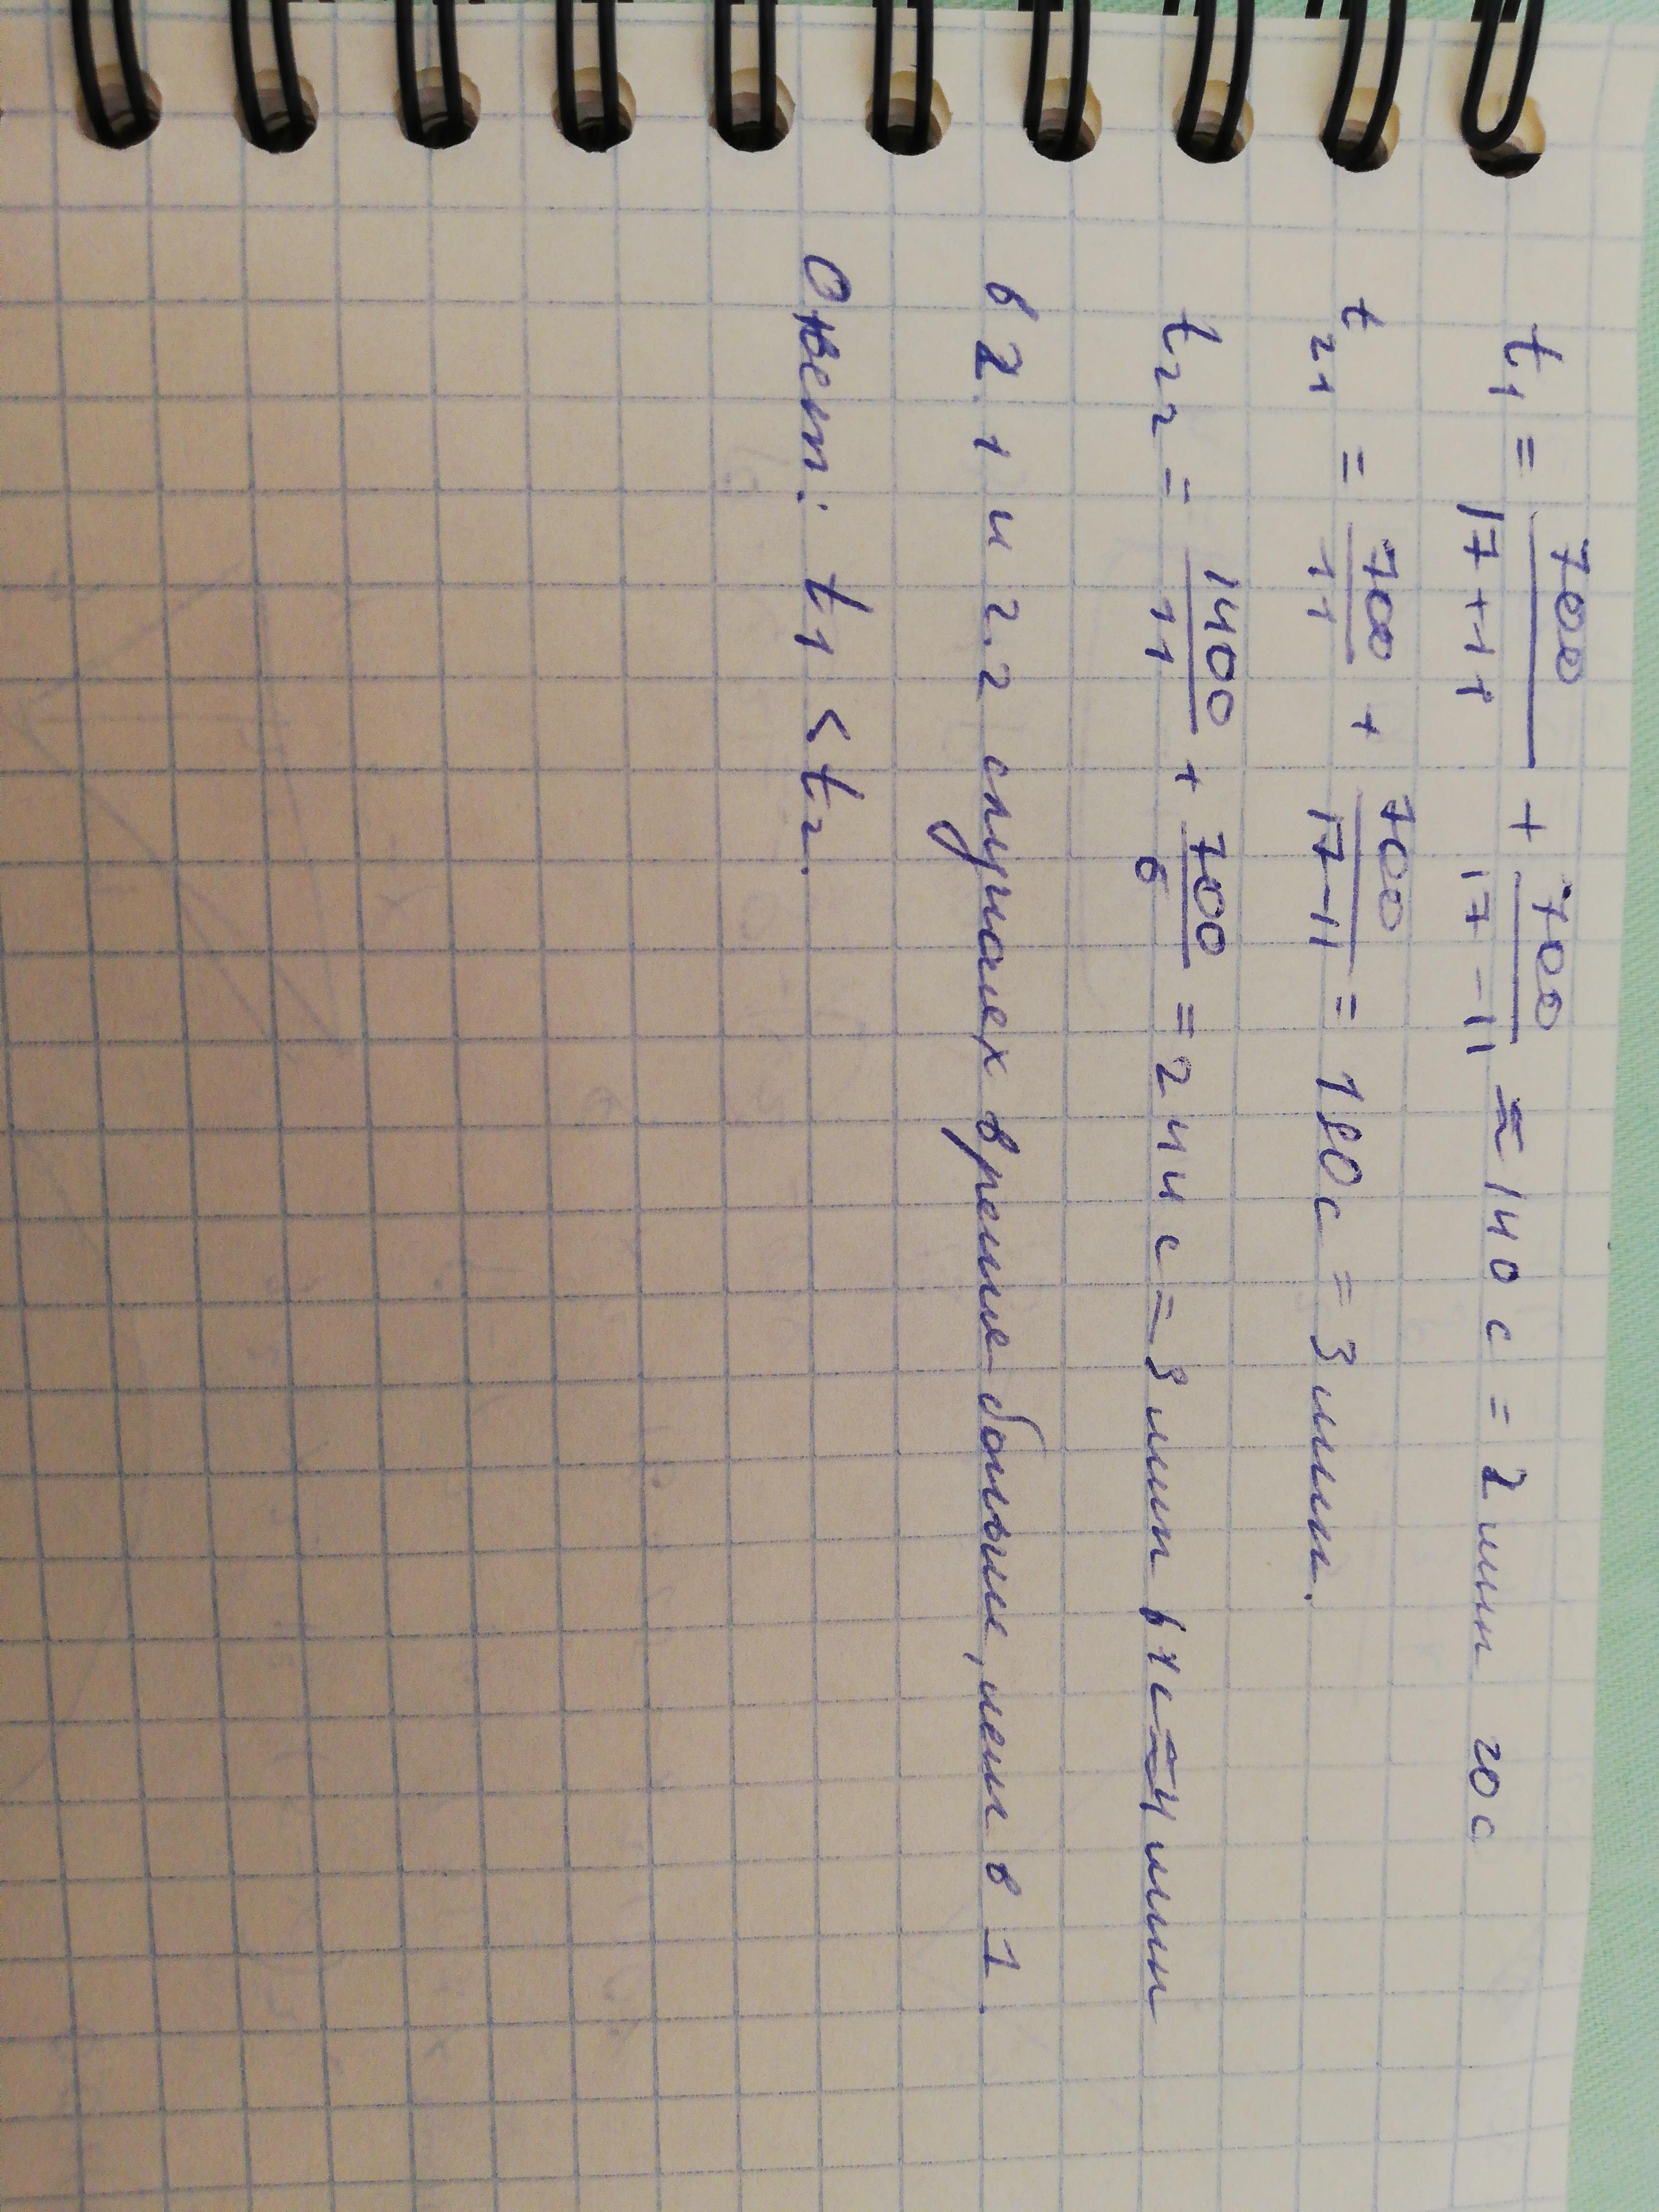 t₁ = 700/(17+11) + 700/(17-11) ≈ 140 с = 2 мин 20 с
t₂₁ = 700/11 + 700/(17-11) = 180 с = 3 мин.
t₂₂ = 1400/11 + 700/6 = 244 с = 3 мин 64 с = 4 мин
в 2.1 и 2.2 случаях время больше, чем в 1.
Ответ: t₁ < t₂.